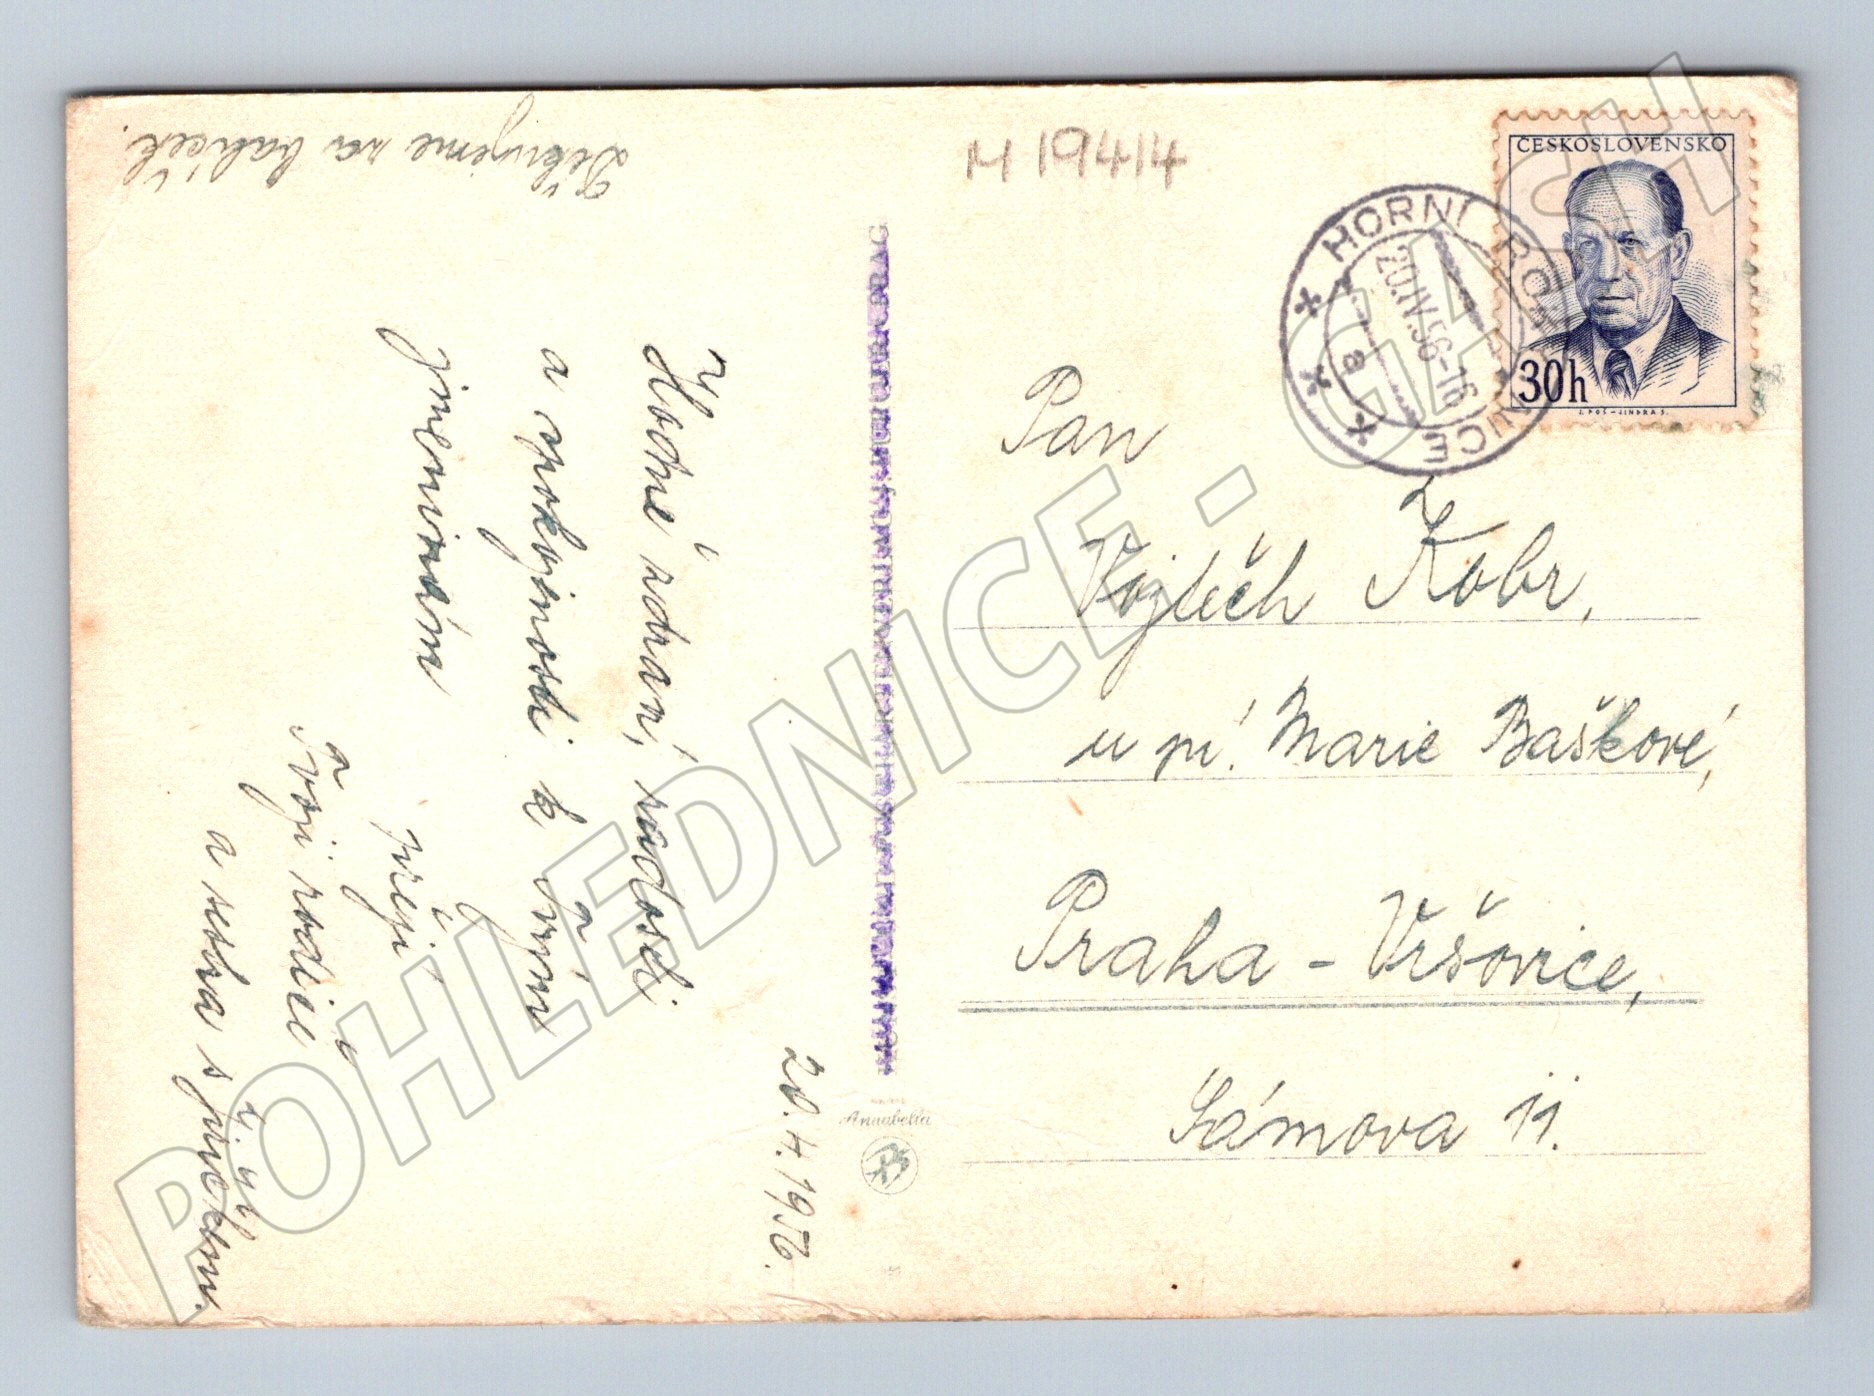 M 19414
ČESKOSLOVENSKO
30h
J. POŠ-JINDRA S.
HORNÍ
20.IV.56-16
a
Pan
Vojtěch Kobr,
u pí. Marie Baškové,
Praha - Vršovice,
Sámova 11.
20.4.1956.
Hodně zdraví, radosti
a spokojenosti k Tvým
jmeninám
přejí
Tvoji rodiče
a sestra s
Děkujeme za balíček.
Annabella
POHLEDNICE - GAASCH